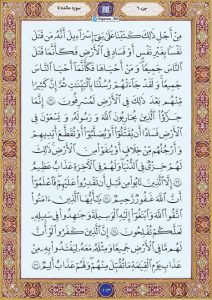 جزء ۶
سوره مائده ۵
مِنْ أَجْلِ ذَٰلِكَ كَتَبْنَا عَلَىٰ بَنِىٓ إِسْرَٰٓءِيلَ أَنَّهُۥ مَن قَتَلَ
نَفْسًۢا بِغَيْرِ نَفْسٍ أَوْ فَسَادٍ فِى ٱلْأَرْضِ فَكَأَنَّمَا قَتَلَ
ٱلنَّاسَ جَمِيعًا وَمَنْ أَحْيَاهَا فَكَأَنَّمَآ أَحْيَا ٱلنَّاسَ
جَمِيعًا وَلَقَدْ جَآءَتْهُمْ رُسُلُنَا بِٱلْبَيِّنَٰتِ ثُمَّ إِنَّ كَثِيرًا
مِّنْهُم بَعْدَ ذَٰلِكَ فِى ٱلْأَرْضِ لَمُسْرِفُونَ ۝ إِنَّمَا
جَزَٰٓؤُا۟ ٱلَّذِينَ يُحَارِبُونَ ٱللَّهَ وَرَسُولَهُۥ وَيَسْعَوْنَ فِى
ٱلْأَرْضِ فَسَادًا أَن يُقَتَّلُوٓا۟ أَوْ يُصَلَّبُوٓا۟ أَوْ تُقَطَّعَ أَيْدِيهِمْ
وَأَرْجُلُهُم مِّنْ خِلَٰفٍ أَوْ يُنفَوْا۟ مِنَ ٱلْأَرْضِ ذَٰلِكَ
لَهُمْ خِزْىٌ فِى ٱلدُّنْيَا وَلَهُمْ فِى ٱلْءَاخِرَةِ عَذَابٌ عَظِيمٌ
۝ إِلَّا ٱلَّذِينَ تَابُوا۟ مِن قَبْلِ أَن تَقْدِرُوا۟ عَلَيْهِمْ فَٱعْلَمُوٓا۟
أَنَّ ٱللَّهَ غَفُورٌ رَّحِيمٌ ۝ يَٰٓأَيُّهَا ٱلَّذِينَ ءَامَنُوا۟
ٱتَّقُوا۟ ٱللَّهَ وَٱبْتَغُوٓا۟ إِلَيْهِ ٱلْوَسِيلَةَ وَجَٰهِدُوا۟ فِى سَبِيلِهِۦ
لَعَلَّكُمْ تُفْلِحُونَ ۝ إِنَّ ٱلَّذِينَ كَفَرُوا۟ لَوْ أَنَّ
لَهُم مَّا فِى ٱلْأَرْضِ جَمِيعًا وَمِثْلَهُۥ مَعَهُۥ لِيَفْتَدُوا۟ بِهِۦ مِنْ
عَذَابِ يَوْمِ ٱلْقِيَٰمَةِ مَا تُقُبِّلَ مِنْهُمْ وَلَهُمْ عَذَابٌ أَلِيمٌ ۝